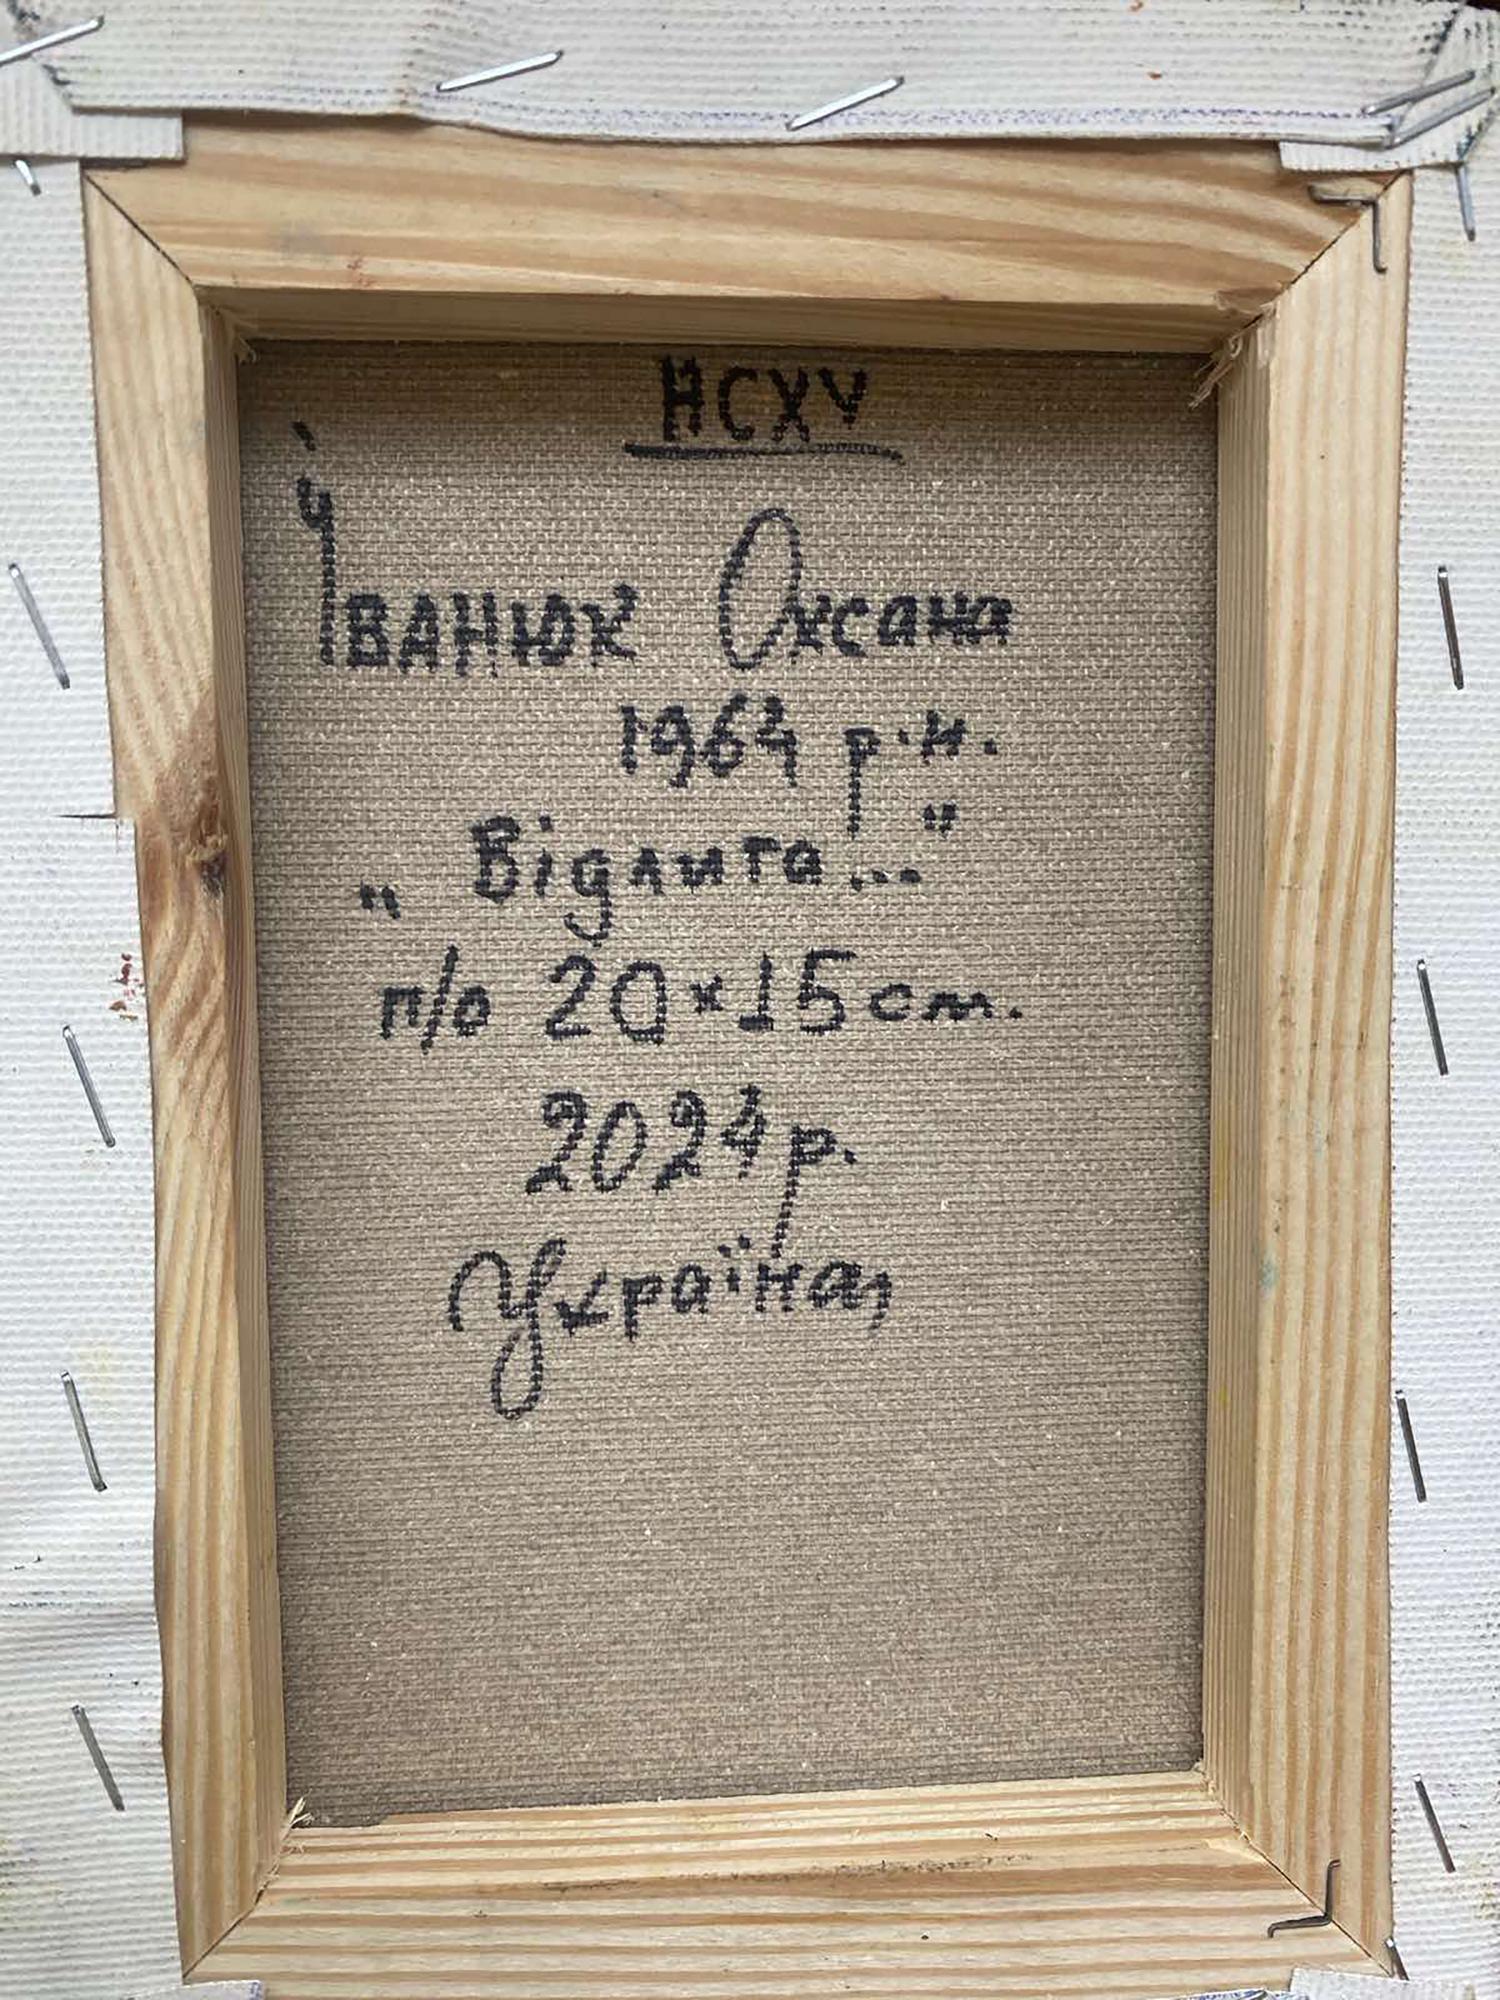 НСХУ
Іванюк Оксана
1964 р.н.
„Відлига..."
п/о 20×15 cm.
2024р.
Україна,